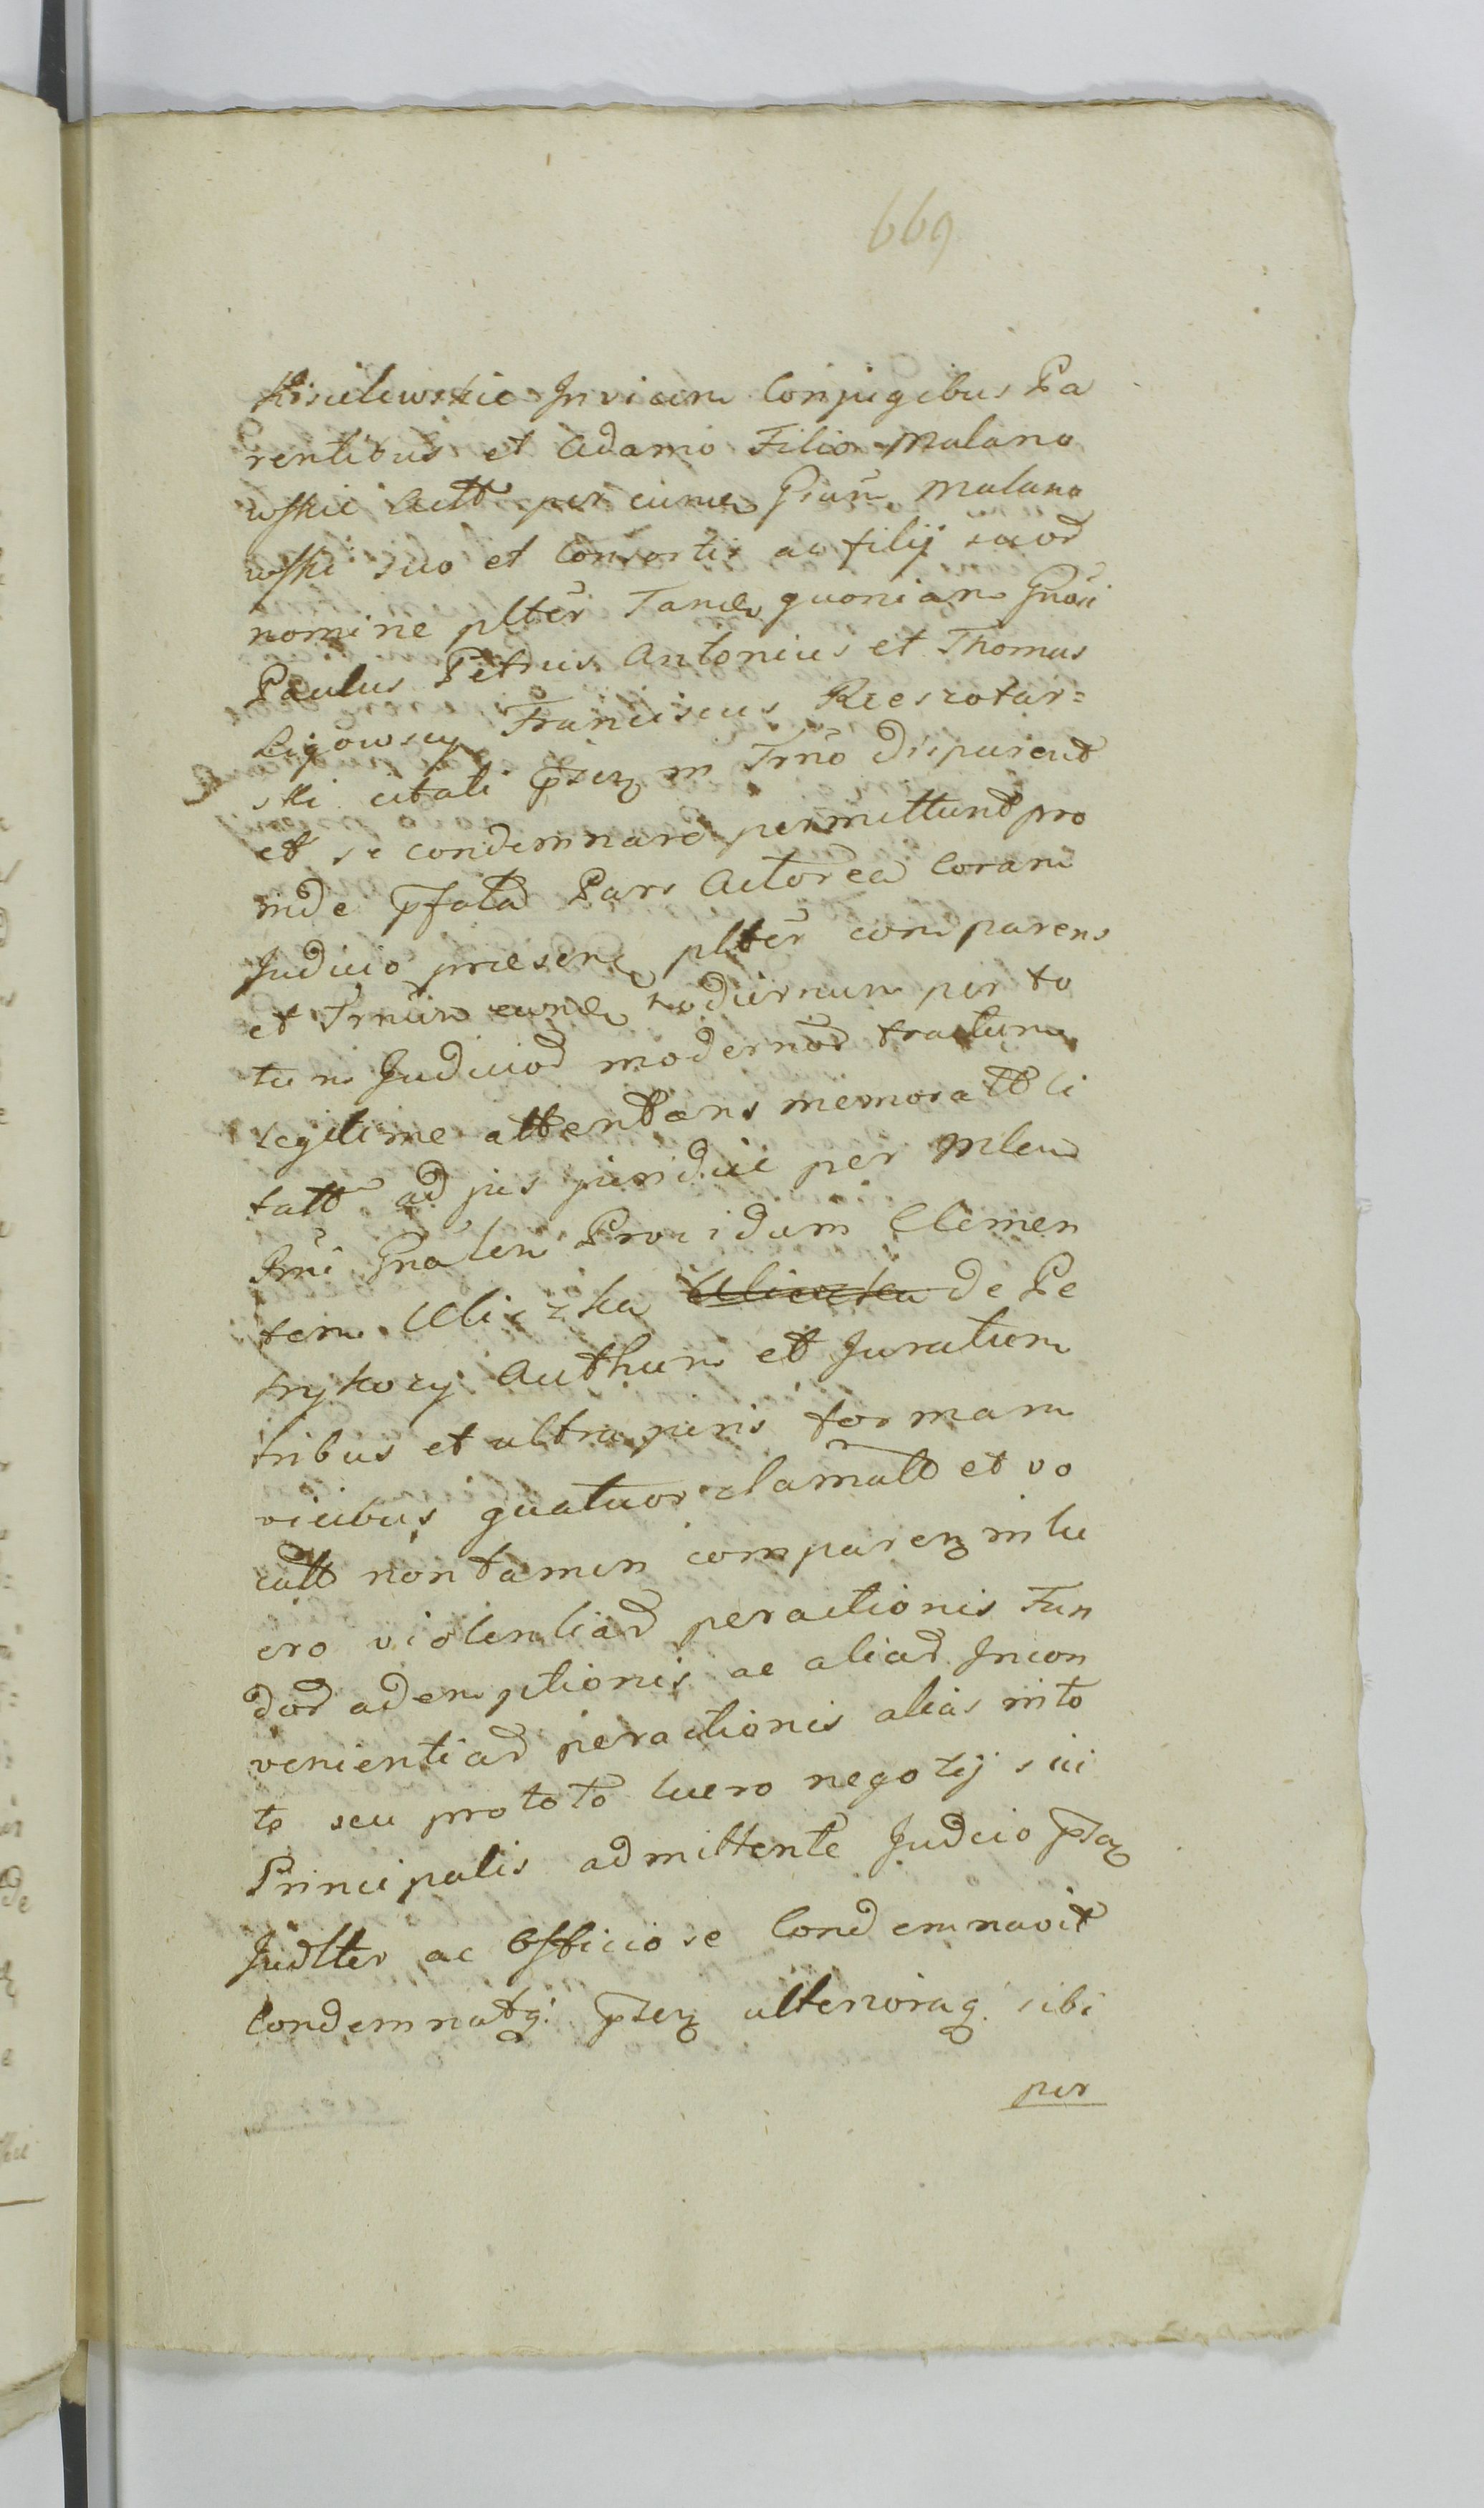 669
Kisielewskie Invicem Conjugibus Pa
rentibus et Adamo Filio Malano
wskie Actt per eund Gnūm Malano
wski suo et Consortis ac filij suoð
nomine plter Tand quoniam Gnōsi
Paulus Petrus Antonius et Thomas
Ligowscy Franciscus Rzeszotar=
ski citati p̄sez in Trno disparent
et se condemnare permittunt pro
inde p̄fata Pars Actorea Coram
Judicio praesenz plter comparens
et Trnum eund hodiernum per to
tum Judicioð modernoð tractum
legitime attentans memoratt ci
tatt ad jus juridice per Mlem
Rni Gnalem Providum Clemen
tem Uliczka de Pe
trykozy Authum et Juratum
tribus et ultra juris formam
vicibus quatuor clamatt et vo
catt non tamen comparenz in lu
cro violentiað peractionis Fun
doð ademptionis ac aliað Incon
venientiað peractionis alias in to
to seu pro toto lucro negotij sui
Principalis admittente Judcio p̄sez
Judlter ac Officiose Condemnavit
Condemnatq. p̄sez ulterioraq. sibi
per